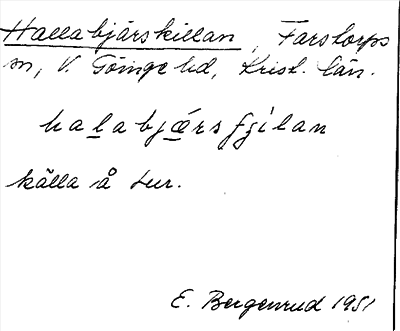 Hallabjärskillan, Farstorps
sn, V. Göinge hd, Krist. län.
halabjærsfʒilan
källa å tur.
E. Bergenrud 1951